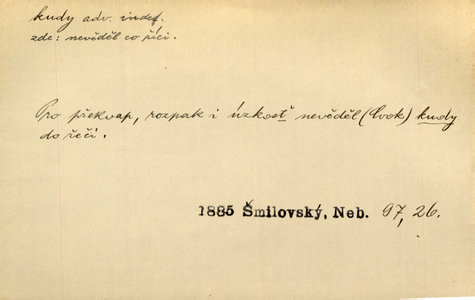 kudy adv. indef.
zde: nevěděl co říci.
Pro překvap, rozpak i úzkost nevěděl (Cvok) kudy
do řeči.
1885 Šmilovský, Neb. 97, 26.